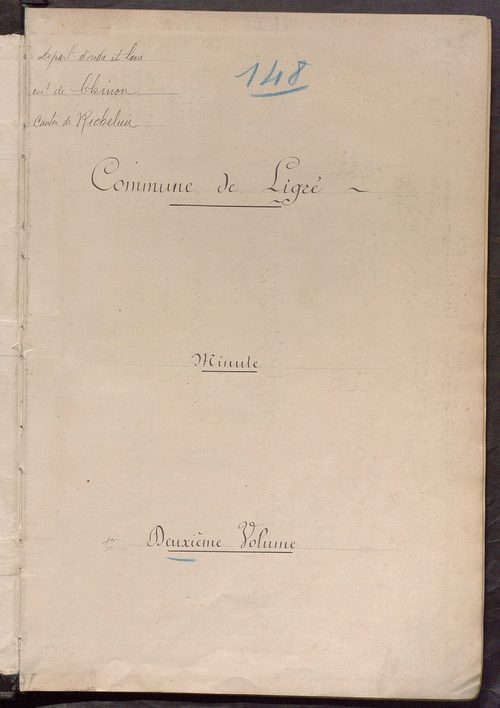 Départt d'Indre et Loire
arrt de Chinon
Canton de Richelieu
148
Commune de Ligré
Minute
1er Deuxième Volume